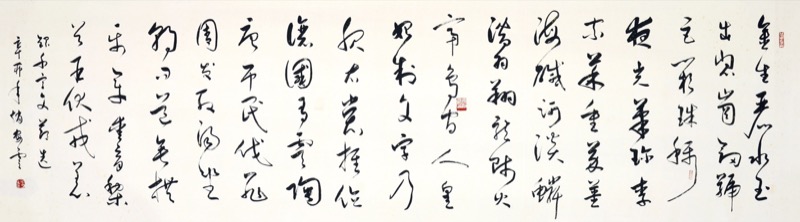 金生麗水玉
出崑崗劍號
巨闕珠稱
夜光菓珍李
柰菜重芥薑
海鹹河淡鱗
潛羽翔龍師火
帝鳥官人皇
始制文字乃
服衣裳推位
讓國有虞陶
唐弔民伐罪
周發殷湯坐
朝問道垂拱
平章愛育黎
首臣伏戎羌
錄千字文節選
辛卯年